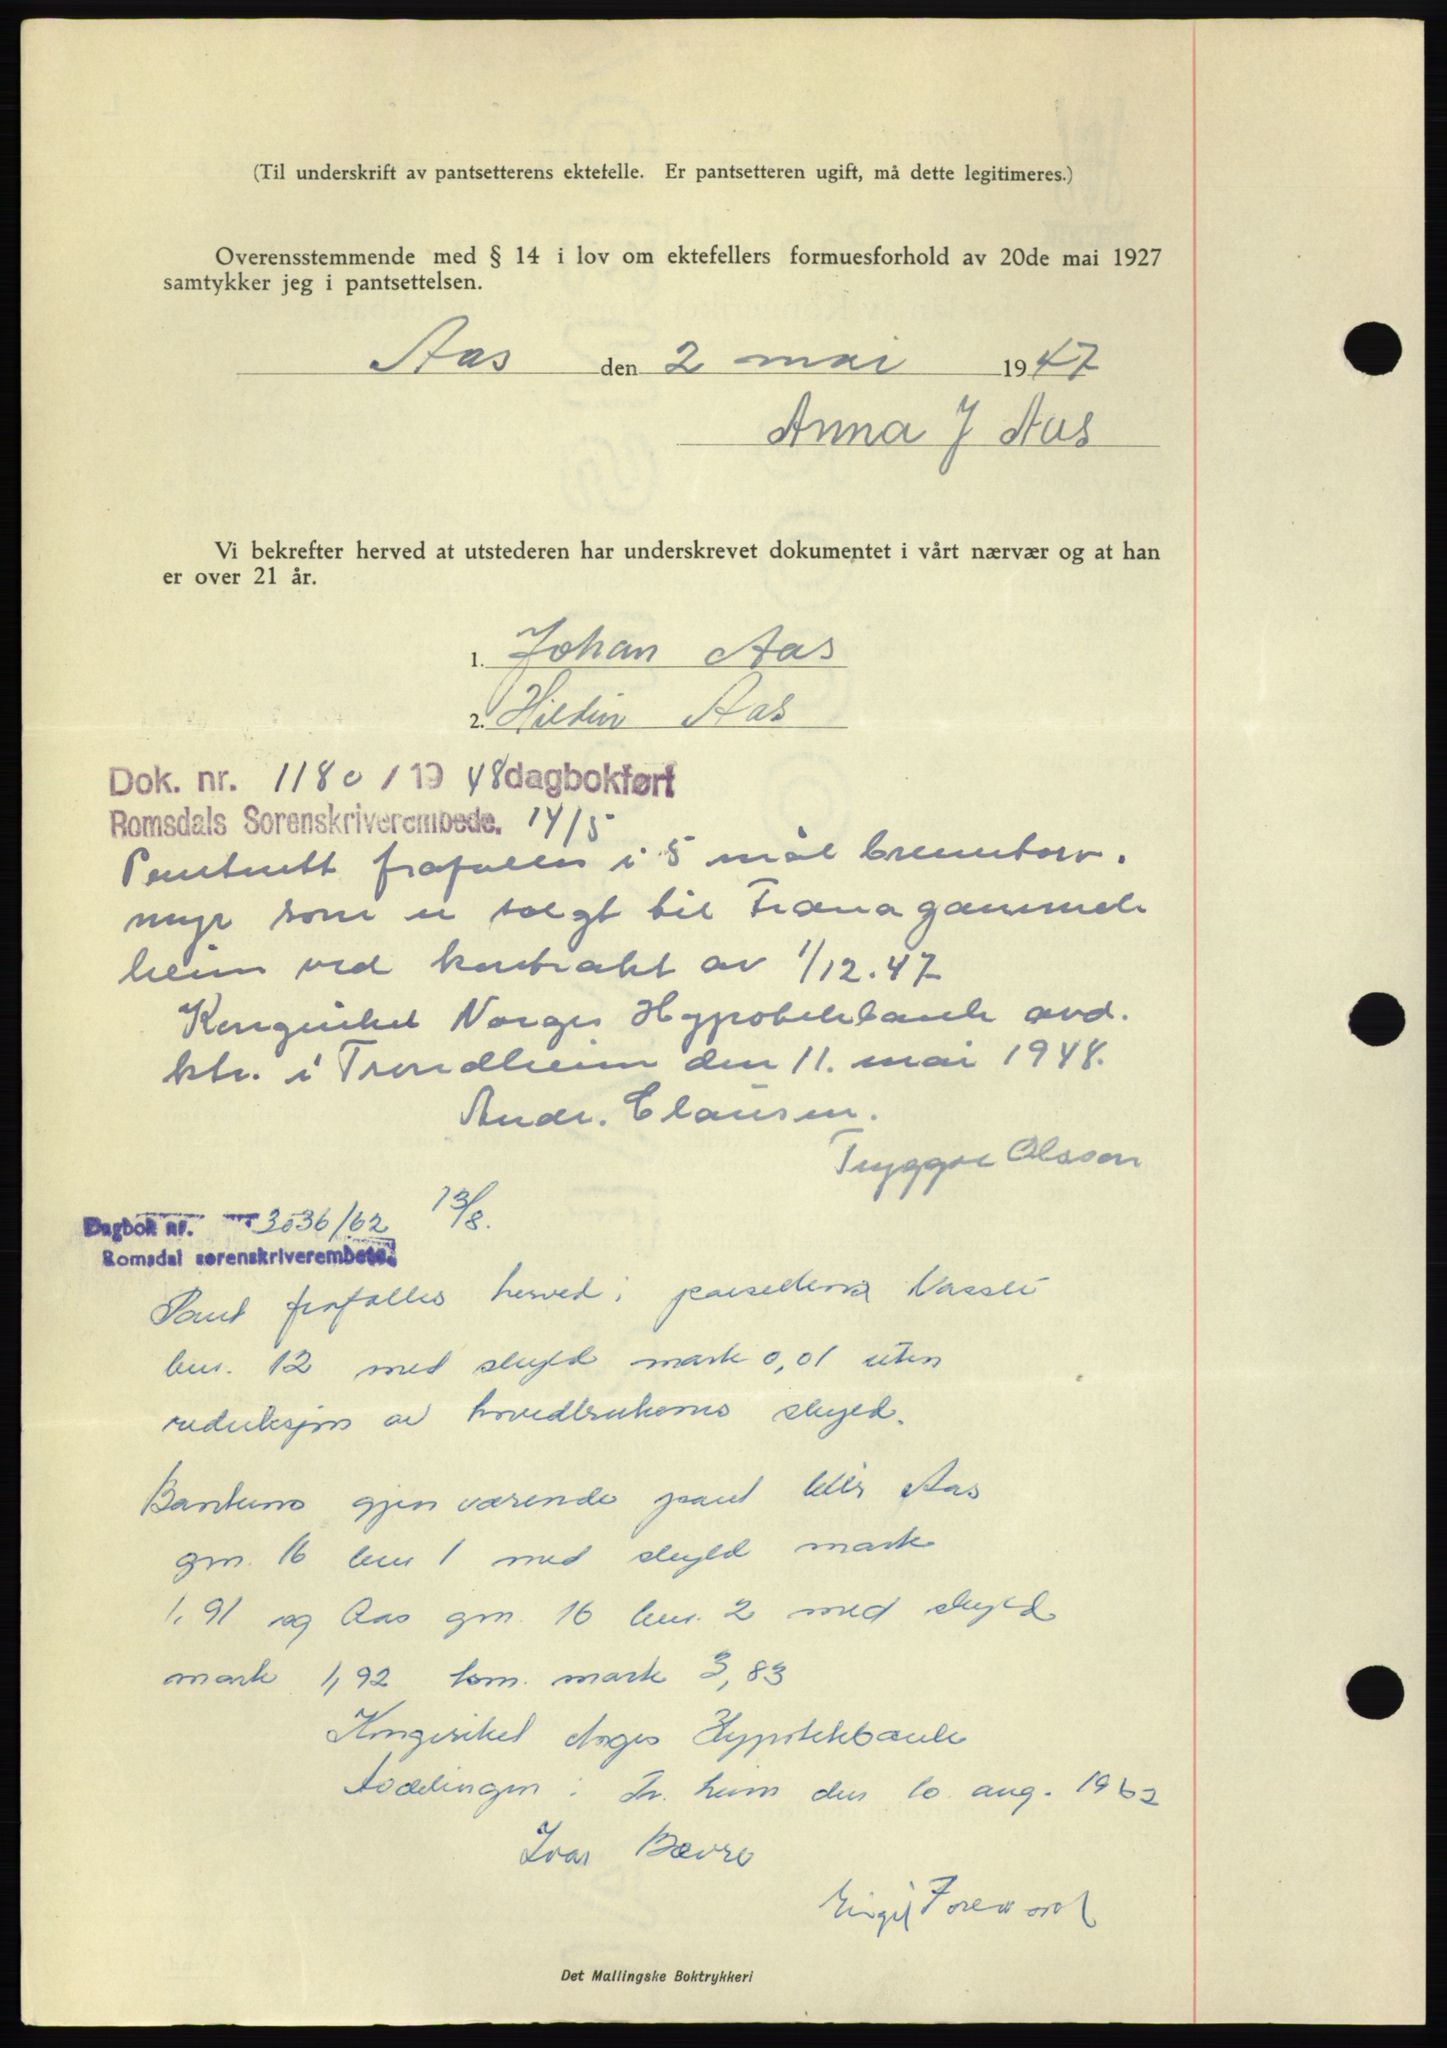 (Til underskrift av pantsetterens ektefelle. Er pantsetteren ugift, må dette legitimeres.)
Overensstemmende med § 14 i lov om ektefellers formuesforhold av 20de mai 1927
samtykker jeg i pantsettelsen.
Aas den 2 mai 1947
Anna J Aas
Vi bekrefter herved at utstederen har underskrevet dokumentet i vårt nærvær og at han
er over 21 år.
1. Johan Aas
2. Aas
Dok. nr. 1180 / 1948 dagbokført
Romsdals Sorenskriverembede. 14/5
Pantrett frafalles i 5 mål brenntorv.
myr som er solgt til Fræna gammel
heim ved kontrakt av 1/12.47
Kongeriket Norges Hypotekbank avd.
ktr. i Trondheim den 11. mai 1948.
Andr. Clausen.
Tryggve Olsson
Dagbok nr. 3036/62 13/8.
Romsdal sorenskriverembete.
Pant frafalles herved i parsellene
bnr. 12 med skyld mark 0,01 uten
reduksjon av hovedbrukenes skyld.
Bankens gjenværende pant blir Aas
gnr. 16 bnr 1 med skyld mark
1,91 og Aas gnr. 16 bnr. 2 med skyld
mark 1,92 tsm. mark 3,83
Kongeriket Norges Hypotekbank
Avdelingen i Tr. heim den 10 aug. 1962
Ivar Bævre
Det Mallingske Boktrykkeri